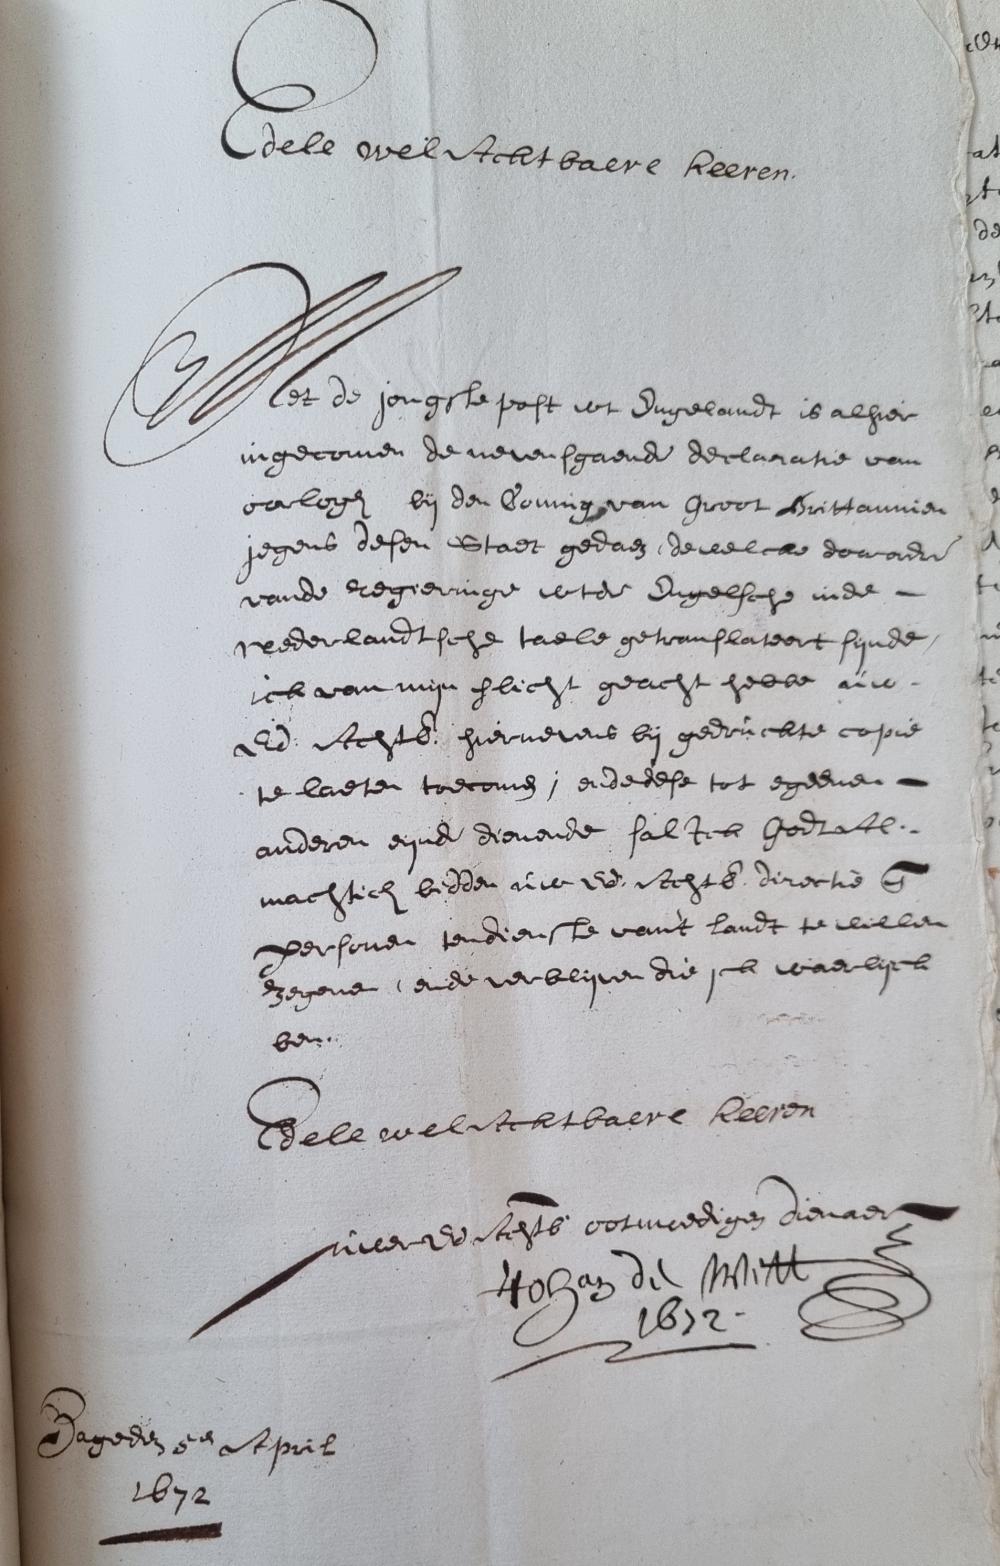 Edele wel Achtbaere heeren.
Met de jongste post uut Engelandt is alhier
ingecomen de nevensgaende declaratie van
oorlogh bij den Coning van Groot Brittannien
jegens desen Staet gedaen, dewelcke door ordre
vande Regieringe uut de Engelsche inde
Nederlandtsche taele getranslateert sijnde,
ick van mijn plicht geacht hebbe uw
Ed. Achtb. hiernevens bij gedruckte copie
te laeten toecomen; ende dese tot egeenen
anderen eynde dienende sal Ick Godt All-
machtich bidden uw Ed. Achtb. directie en
persoonen ten dienste van't landt te willen
zegenen, ende verblijven die ick waerlijck
ben.
Edele wel Achtbaere heeren
uwer Ed Achtb ootmoedigen Dienaer
Johan de Witt
1672.
Hage den 5en April
1672